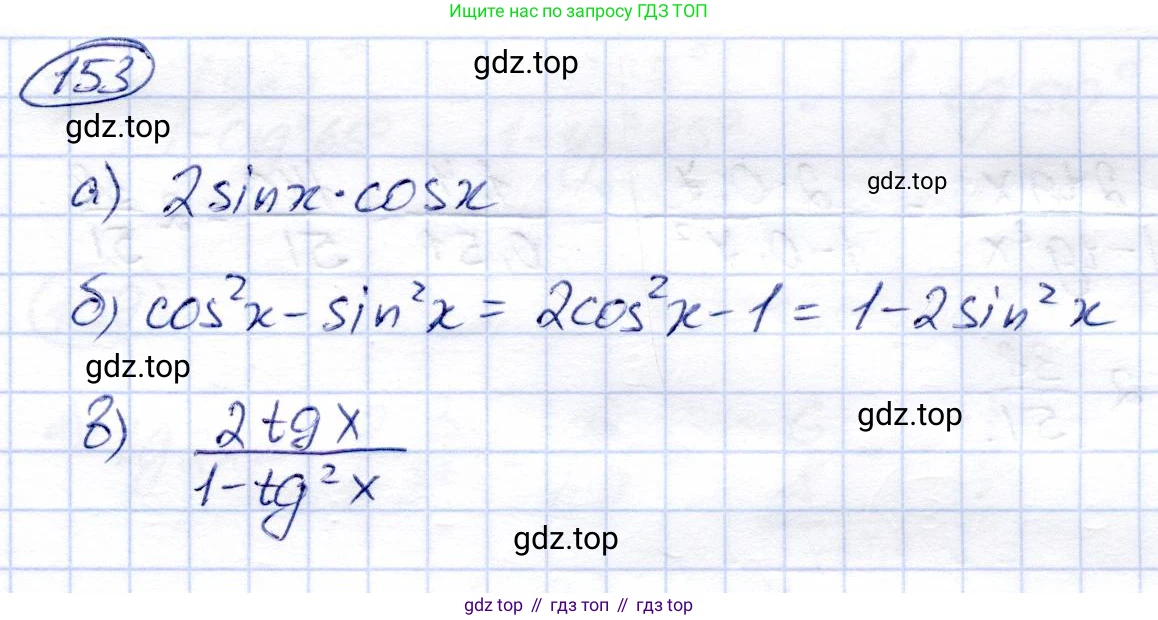 Ищите нас по запросу ГДЗ ТОП
153
gdz.top
gdz.top
а) 2 sin x · cos x
gdz.top
б) cos²x – sin²x = 2cos²x – 1 = 1 – 2 sin²x
gdz.top
в) 2 tg x
1 – tg²x
gdz.top
gdz.top
gdz top // гдз топ // gdz top